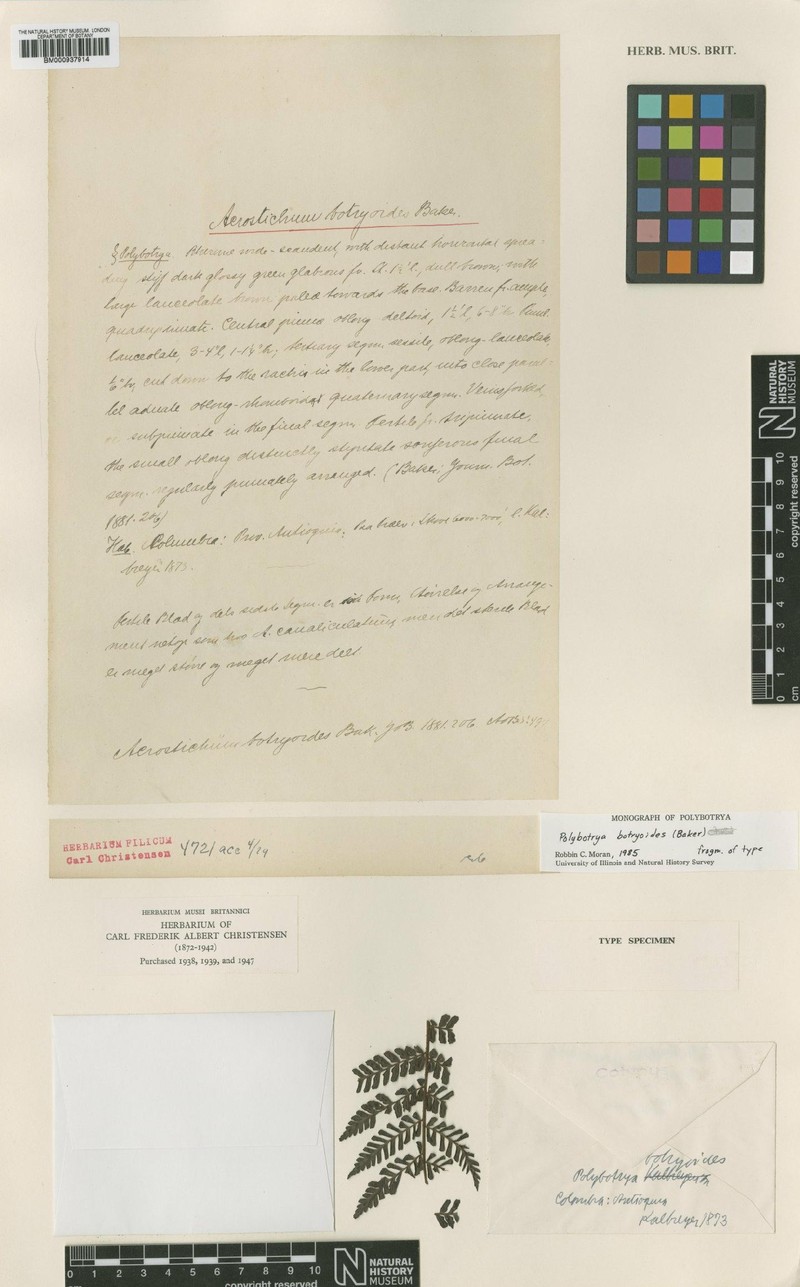 THE NATURAL HISTORY MUSEUM, LONDON
DEPARTMENT OF BOTANY
BM000937914
HERB. MUS. BRIT.
Acrostichum botryoides Baker.
§ Polybotrya. Rhizome wide-scandent, with distant horizontal sprea-
ding stiff dark glossy green glabrous fr. St. 1½'l, dull brown, with
large lanceolate brown palea towards the base. Barren fr. ample,
quadripinnate. Central pinna oblong deltoid, 1½'l, 6-8" br. Pinnul.
lanceolate, 3-4"l, 1-1¼" br; tertiary segm. sessile, oblong-lanceolate,
br, cut down to the rachis in the lower part into close paral-
lel adnate oblong-rhomboidal quaternary segm. Veins forked,
or subpinnate in the final segm. Fertile fr. tripinnate,
the small oblong distinctly stipitate soriferous final
segm. regularly pinnately arranged. (Baker: Journ. Bot.
1881. 206)
Hab. Columbia: Prov. Antioquia; 6000-7000', c. Kal-
breyer 1873.
Fertile Blad og dels sidste segm. er Form, Størrelse og Arrange-
ment netop som hos A. canaliculatum, men det sterile Blad
er meget større og meget mere delt.
Acrostichum botryoides Bak. JoB. 1881. 206
HERBARIUM FILICUM
Carl Christensen
4721 acc 4/84
MONOGRAPH OF POLYBOTRYA
Polybotrya botryoides (Baker)
fragm. of type
Robbin C. Moran, 1985
University of Illinois and Natural History Survey
HERBARIUM MUSEI BRITANNICI
HERBARIUM OF
CARL FREDERIK ALBERT CHRISTENSEN
(1872-1942)
Purchased 1938, 1939, and 1947
TYPE SPECIMEN
botryoides
Polybotrya Kalbreyeri
Colombia: Antioquia
Kalbreyer 1873
NATURAL
HISTORY
MUSEUM
0 1 2 3 4 5 6 7 8 9 10
cm
copyright reserved
0 1 2 3 4 5 6 7 8 9 10
cm
copyright reserved
NATURAL
HISTORY
MUSEUM